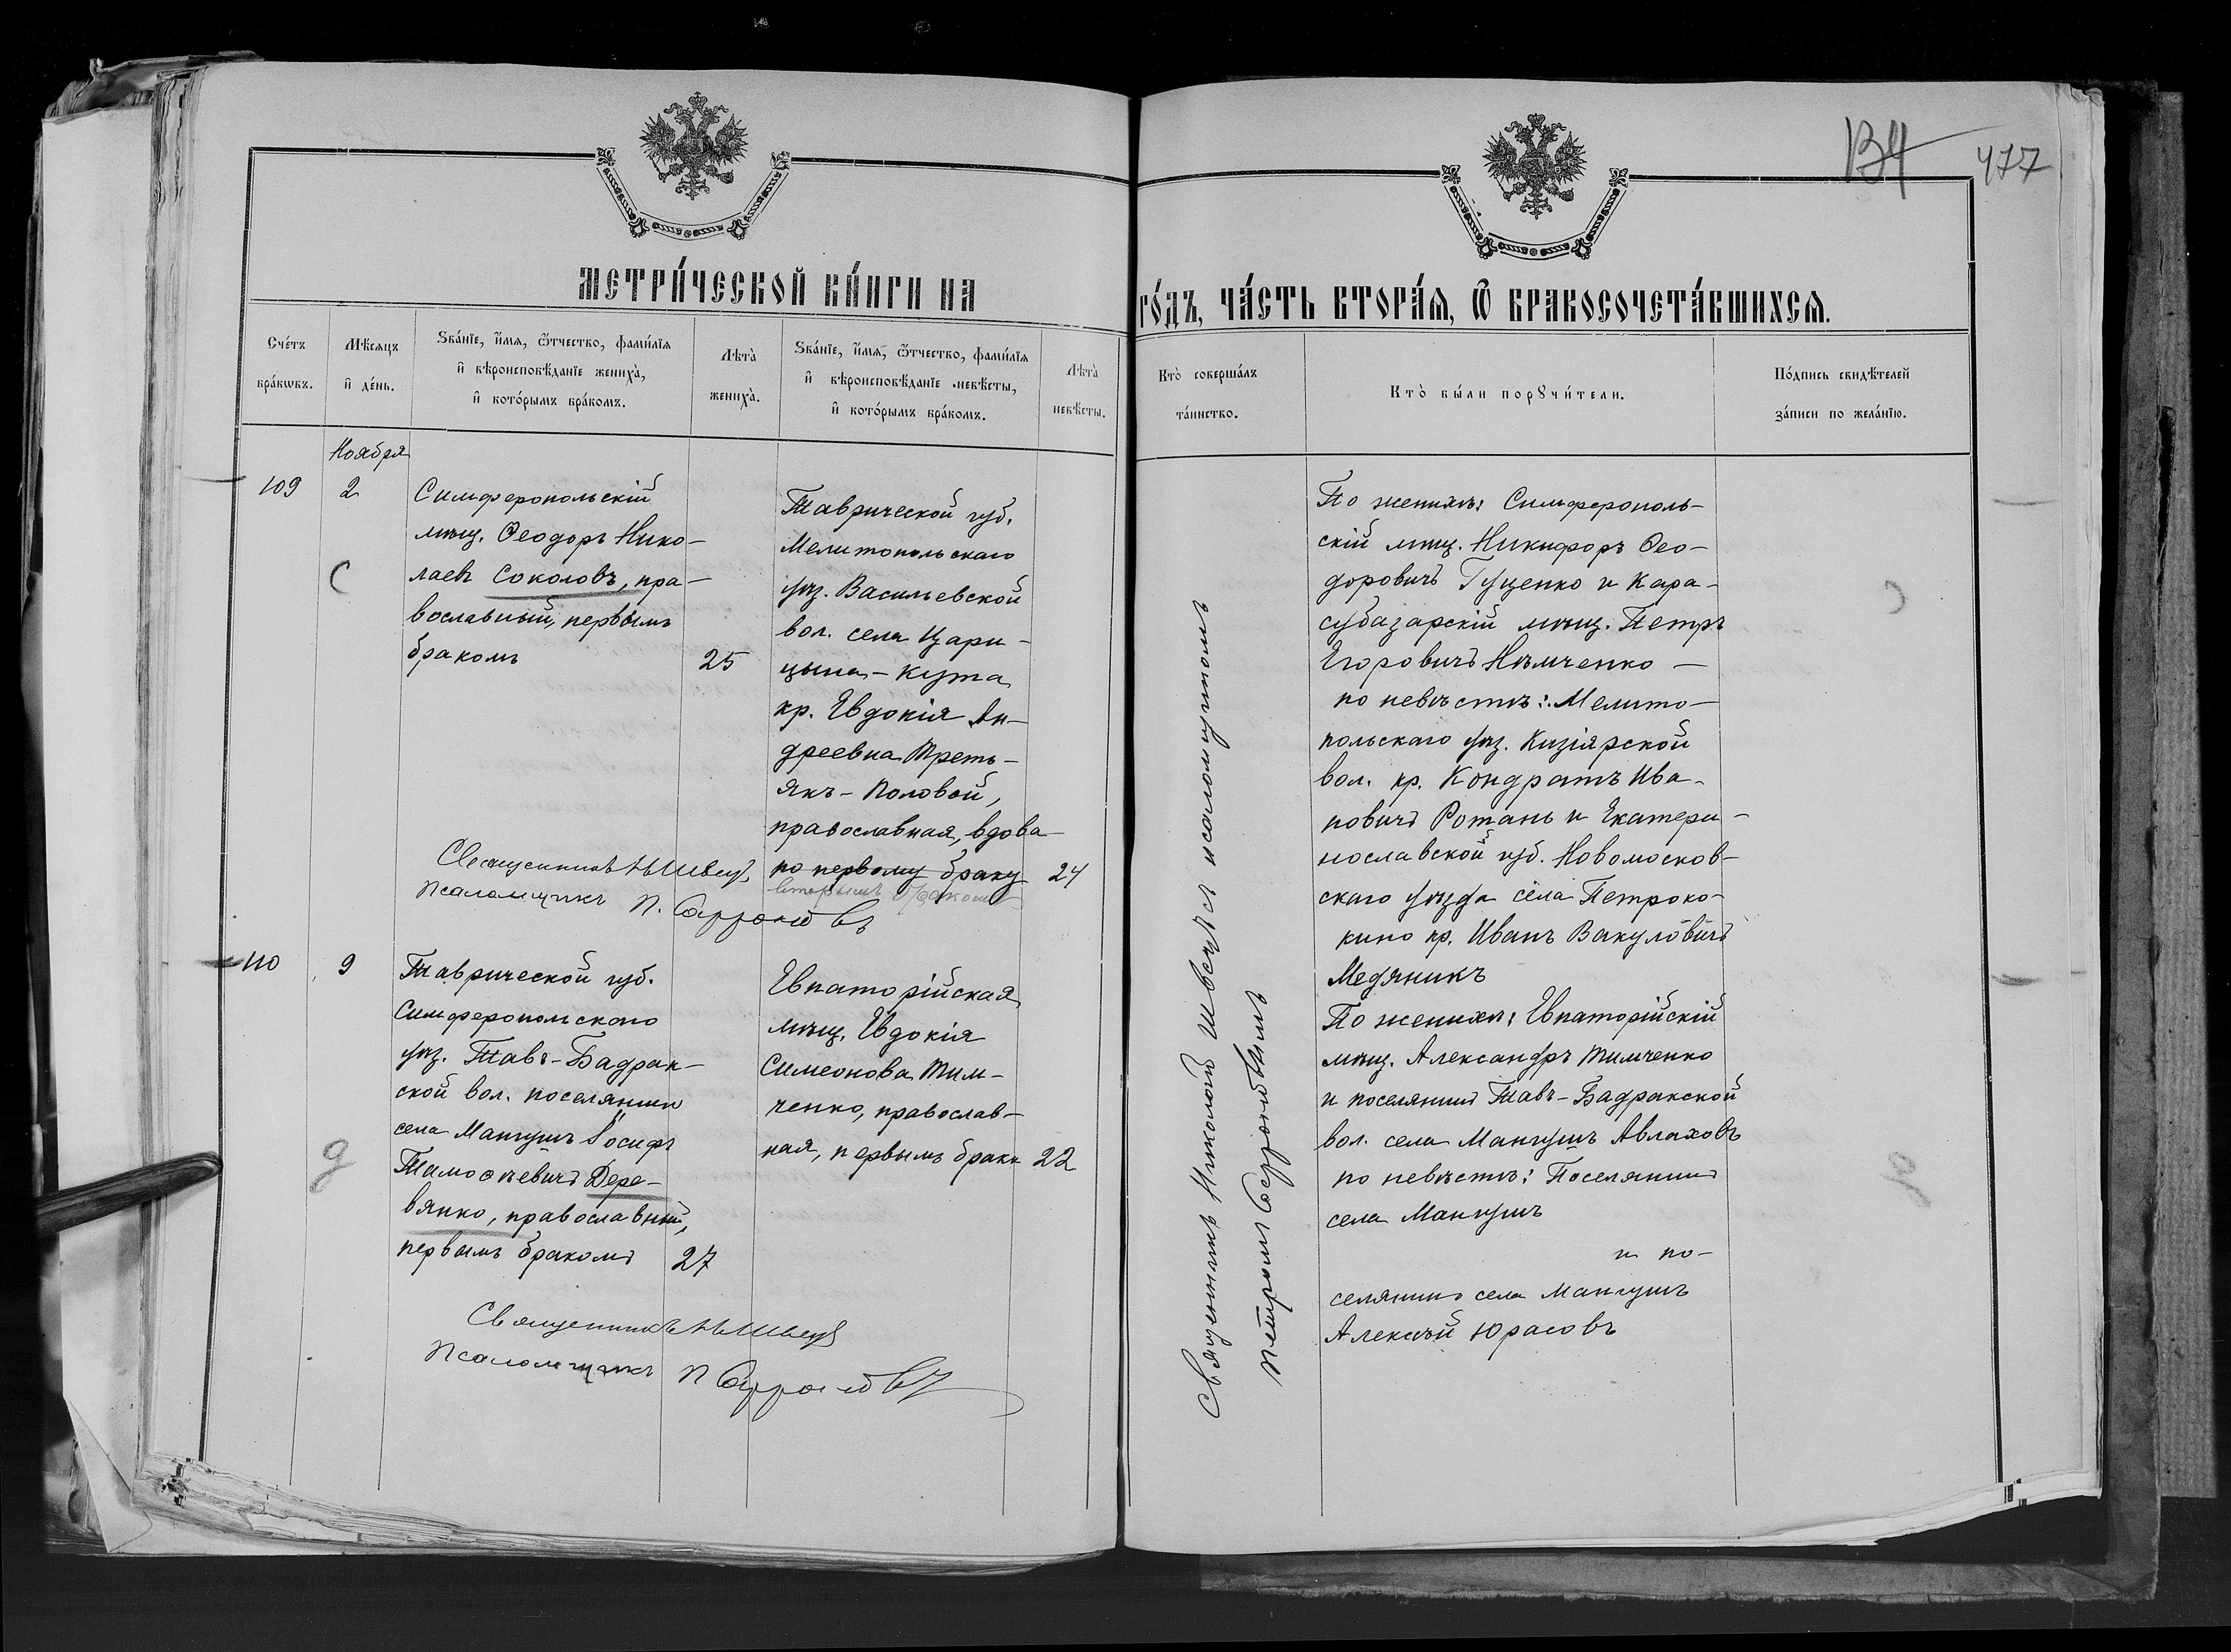 134 477
МЕТРИ́ЧЕСКОЙ КНИ́ГИ НА ГО́ДЪ, ЧА́СТЬ ВТОРА́Я, Ѿ БРАКОСОЧЕТА́ВШИХСЯ.
Сче́тъ бра́кѡвъ.
Мѣ́сяцъ и҆ де́нь.
Ѕва́нїе, и҆́мя, ѻ҆́тчество, фами́лїя
и҆ вѣроисповѣ́данїе жениха̀,
и҆ кото́рымъ бра́комъ.
Лѣта̀ жениха̀.
Ѕва́нїе, и҆́мя, ѻ҆́тчество, фами́лїя
и҆ вѣроисповѣ́данїе невѣ́сты,
и҆ кото́рымъ бра́комъ.
Лѣта̀ невѣ́сты.
Кто̀ соверша́лъ та́инство.
Кто̀ бы́ли порꙋчи́тели.
По́дпись свидѣ́телей за́писи по жела́нїю.
Ноября
109
2
С
Симферопольскій
мѣщ. Ѳеодоръ Нико-
лаевъ Соколовъ, пра-
вославный, первымъ
бракомъ
25
Таврической губ.
Мелитопольскаго
уѣз. Васильевской
вол. села Цари-
цына-Кута
кр. Евдокія Ан-
дреевна Треть-
якъ-Половой,
православная, вдова
по первому браку
вторымъ бракомъ
24
Священникъ Н Швецъ
Псаломщикъ П.
Священникъ Николай Швецъ съ псаломщикомъ
Петромъ
По женихѣ: Симферополь-
скій мѣщ. Никифоръ Ѳео-
доровичъ Гуценко и Кара-
субазарскій мѣщ. Петръ
Егоровичъ Нѣмченко —
по невѣстѣ: Мелито-
польскаго уѣз. Кизіярской
вол. кр. Кондратъ Ива-
новичъ Ротань и Екатери-
нославской губ. Новомосков-
скаго уѣзда села Петроко-
кино кр. Иванъ Вакуловичъ
Медяникъ
110
9
Д
Таврической губ.
Симферопольскаго
уѣз. Тавъ-Бадрак-
ской вол. поселянинъ
села Мангушъ Іосифъ
Тимоѳеевичъ Дере-
вянко, православный,
первымъ бракомъ
27
Евпаторійская
мѣщ. Евдокія
Симеонова Тим-
ченко, православ-
ная, первымъ брак
22
Священникъ Н Швецъ
Псаломщикъ П
По женихѣ: Евпаторійскій
мѣщ. Александръ Тимченко
и поселянинъ Тавъ-Бадракской
вол. села Мангушъ Авлаховъ
по невѣстѣ: Поселянинъ
села Мангушъ
и по-
селянинъ села Мангушъ
Алексѣй Юрасовъ